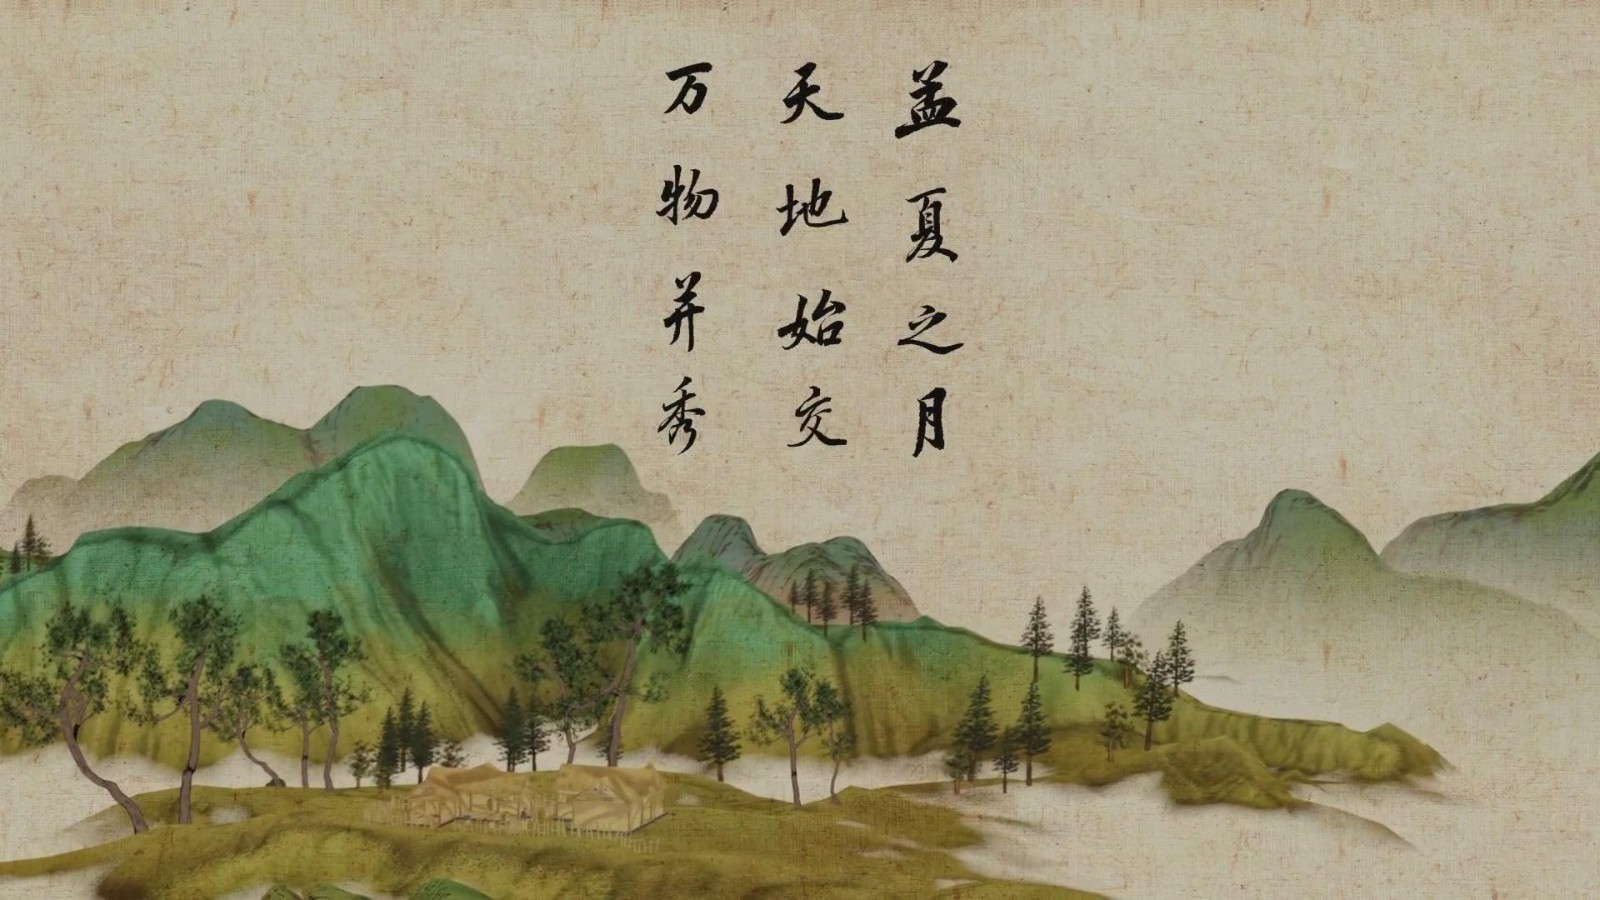 盖夏之月
天地始交
万物并秀